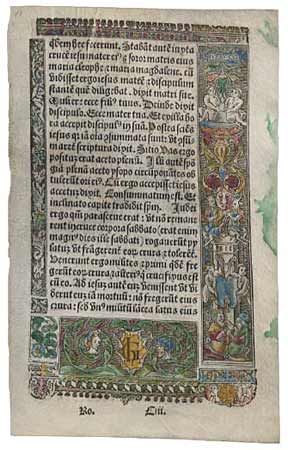 qdem hec fecerunt. Stabāt autē iuxta
crucē iesu mater eiꝰ ⁊ soror matris eius
maria cleophe ⁊ maria magdalene. cū
vidisset ergo iesus matrē ⁊ discipulum
stantē quē diligebat. dixit matri sue.
Mulier: ecce filiꝰ tuus. Deinde dixit
discipulo. Ecce mater tua. Et ex illa ho
ra accepit discipulꝰ in suā. Postea sciēs
iesus quia oīa cōsummata sunt: vt cōsū
maret scriptura dixit. Sitio. Vas ergo
positū erat aceto plenū. Illi autē spō
giā plenā aceto ysopo circūponētes ob
tulerūt ori eiꝰ. Cū ergo accepisset iesus
acetū: dixit. Consummatum est. Et
inclinato capite tradidit spm. Judei
ergo qm parasceue erat: vt nō remane
rent in cruce corpora sabbato (erat enim
magnꝰ dies ille sabbati) rogauerūt py
latū: vt frāgerent eorū crura ⁊ tolerēt.
Venerunt ergo milites ⁊ primi qdē fre
gerūt crura ⁊ alteriꝰ q̄ crucifixus est
cū eo. Ad iesuz autē cū venissent vt vi
derunt eū iam mortuū: nō fregerūt eius
crura: sed vnꝰ militū lācea latus eius
Ro. C iii.